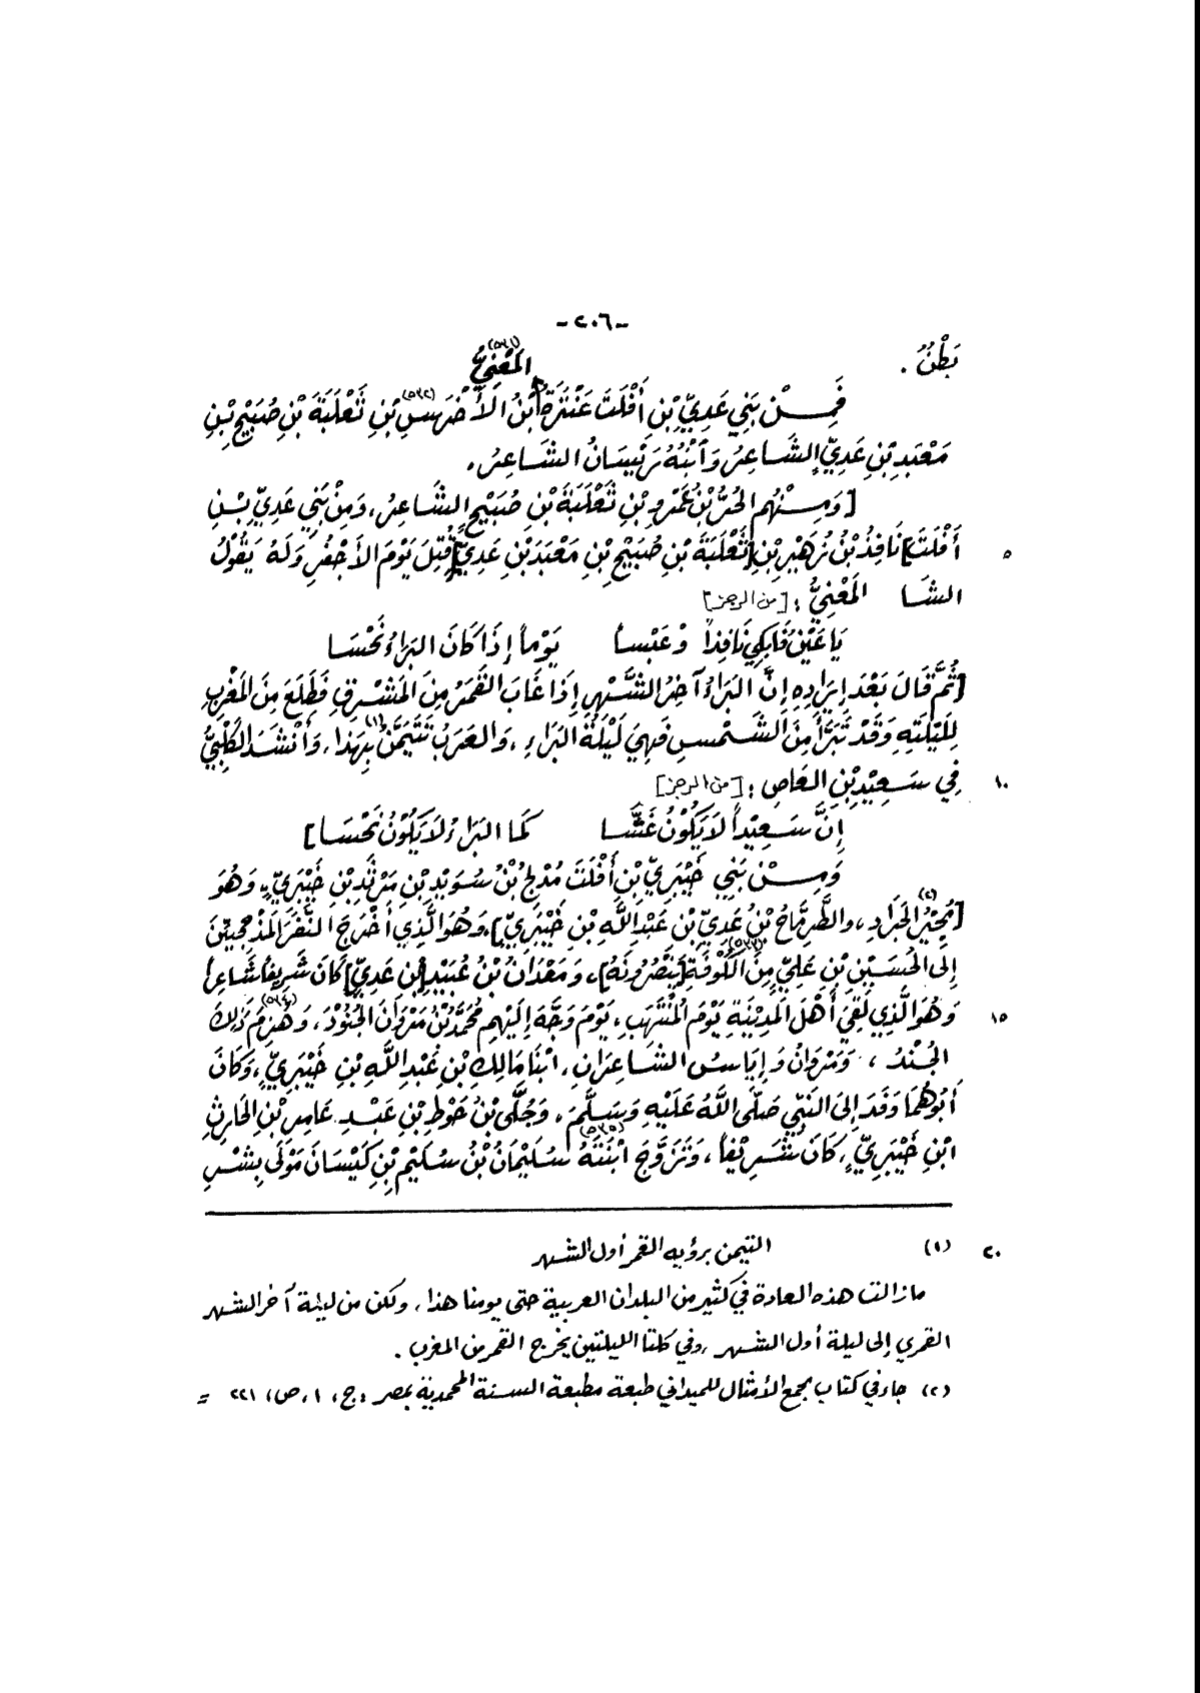 -٢٠٦-
بَطْنٌ .
المَعْنِيُّ (٥٣١)
فَمِنْ بَنِي عَدِيِّ بْنِ أَفْلَتَ عَنْتَرَةُ ابْنُ الأَخْرَسِ (٥٣٢) بْنِ ثَعْلَبَةَ بْنِ صُبَيْحِ بْنِ
مَعْبَدِ بْنِ عَدِيٍّ الشَّاعِرُ وَابْنُهُ رَئِيسَانُ الشَّاعِرُ .
[وَمِنْهُم الحُرُّ بْنُ عَمْرِو بْنِ ثَعْلَبَةَ بْنِ صُبَيْحٍ الشَّاعِرُ، وَمِنْ بَنِي عَدِيِّ بْنِ
أَفْلَتَ] نَافِذُ بْنُ زُهَيْرِ بْنِ [ثَعْلَبَةَ بْنِ صُبَيْحِ بْنِ مَعْبَدِ بْنِ عَدِيٍّ] قُتِلَ يَوْمَ الأَجْفُرِ وَلَهُ يَقُولُ ٥
الشَّا المَعْنِيُّ : [من الرجز]
يَا عَيْنُ فَابْكِي نَافِذاً وَعَبْسا يَوْماً إِذَا كَانَ البَرَاءُ نَحْسَا
[ثُمَّ قَالَ بَعْدَ إِيرَادِهِ إِنَّ البَرَاءَ آخِرُ الشَّهْرِ إِذَا غَابَ القَمَرُ مِنَ المَشْرِقِ فَطَلَعَ مِنَ المَغْرِبِ
لِلَيْلَتِهِ وَقَدْ تَبَرَّأَ مِنَ الشَّمْسِ فَهِيَ لَيْلَةُ البَرَاءِ ، وَالعَرَبُ تَتَيَمَّنُ (١) بِهَذَا، وَأَنْشَدَ الكَلْبِيُّ
فِي سَعِيْدِ بْنِ العَاصِ : [من الرجز] ١٠
إِنَّ سَعِيْداً لَا يَكُوْنُ غَسَّا كَمَا البَرَاءُ لَا يَكُوْنُ نَحْسَا]
وَمِنْ بَنِي خَيْبَرِيِّ بْنِ أَفْلَتَ مُدْلِجُ بْنُ سُوَيْدِ بْنِ مَرْثَدِ بْنِ خَيْبَرِيٍّ، وَهُوَ
[مُجِيْرُ الجَرَادِ (٢)، والطِّرِمَّاحُ بْنُ عَدِيِّ بْنِ عَبْدِ اللَّهِ بْنِ خَيْبَرِيٍّ]، وَهُوَ الَّذِي أَخْرَجَ النَّفَرَ المَذْحِجِيِّيْنَ
إِلَى الحُسَيْنِ بْنِ عَلِيٍّ مِنَ الكُوْفَةِ (٥٣٣) [يَنْصُرُونَهُ]، وَمَعْدَانُ بْنُ عُبَيْدِ [بْنِ عَدِيٍّ] كَانَ شَرِيفاً شَاعِراً
وَهُوَ الَّذِي لَقِيَ أَهْلَ المَدِيْنَةِ يَوْمَ المُنْتَهَبِ، يَوْمَ وَجَّهَ إِلَيْهِم مُحَمَّدُ بْنُ مَرْوَانَ الجُنُوْدَ، وَهَزَمَ (٥٣٤) ذَلِكَ ١٥
الجُنْدُ ، وَمَرْوَانُ وَإِيَاسُ الشَّاعِرَانِ، ابْنَا مَالِكِ بْنِ عَبْدِ اللَّهِ بْنِ خَيْبَرِيٍّ، وَكَانَ
أَبُوْهُمَا وَفَدَ إِلَى النَّبِيِّ صَلَّى اللَّهُ عَلَيْهِ وَسَلَّمَ، وَجُلَّى بْنُ حَوْطِ بْنِ عَبْدِ عَامِرِ بْنِ الحَارِثِ
ابْنِ خَيْبَرِيٍّ، كَانَ شَرِيْفاً، وَتَزَوَّجَ ابْنَتَهُ (٥٣٥) سُلَيْمَانُ بْنُ سُلَيْمِ بْنِ كَيْسَانَ مَوْلَى بِشْرِ
(١) التيمن برؤيه القمر أول الشهر ٢٠
مازالت هذه العادة في كثير من البلدان العربية حتى يومنا هذا، ولكن من ليلة آخر الشهر
القمري إلى ليلة أول الشهر ، وفي كلتا الليلتين يخرج القمر من المغرب .
(٢) جاء في كتاب مجمع الأمثال للميداني طبعة مطبعة السنة المحمدية بمصر ، ج، ١، ص، ٢٢١ =